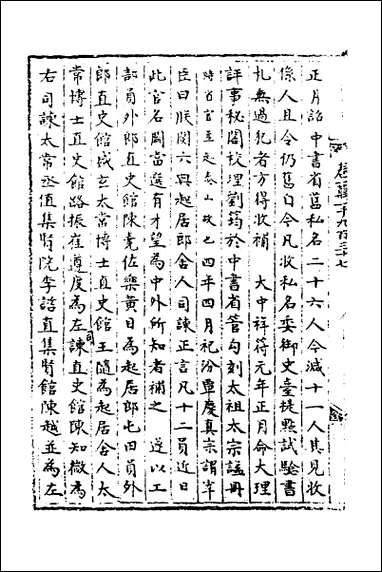 正月詔中書省舊私名二十六人令減十一人其見收
係人且令仍舊自今凡收私名委御史臺提點試驗書
札無過犯者方得收補　大中祥符元年正月命大理
評事秘閣校理劉筠於中書省管勾刻太祖太宗諡冊
時省官並赴泰山故也四年四月祀汾陰慶真宗謂宰
臣曰朕閱六典起居郎舍人司諫正言凡十二員近日
此官名闕當選有才望為中外所知者補之　遂以工
部員外郎直史館陳堯佐樂黃目為起居郎屯田員外
郎直史館盛玄太常博士直史館王隨為起居舍人太
常博士直史館路振崔遵度為左司諫直史館陳知微為
右司諫太常丞直集賢院李諮直集賢館陳越並為左